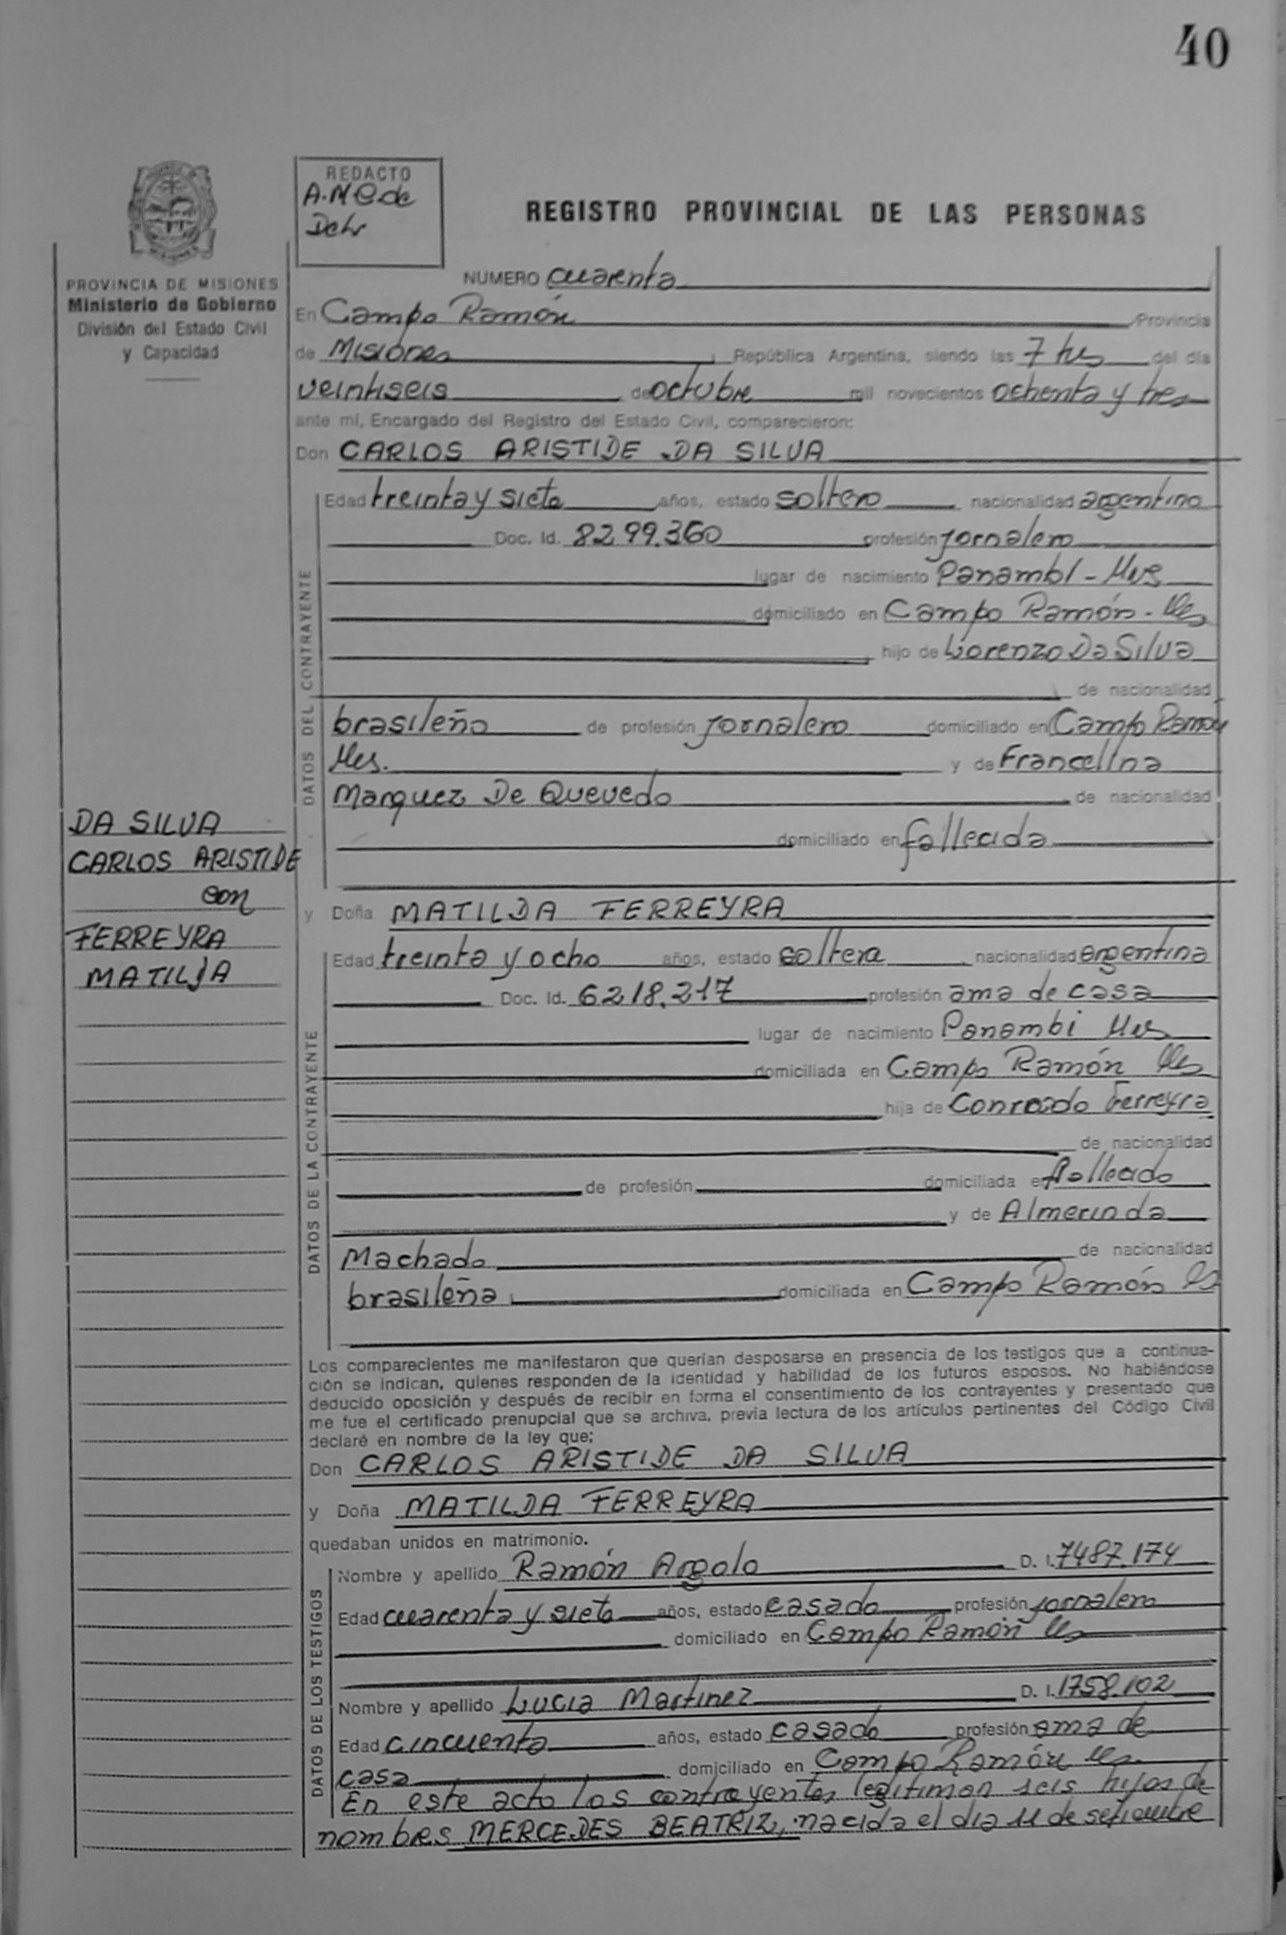 40
REDACTO
A.M.C. de
REGISTRO PROVINCIAL DE LAS PERSONAS
PROVINCIA DE MISIONES
Ministerio de Gobierno
División del Estado Civil
y Capacidad
NUMERO cuarenta
En Campo Ramón Provincia
de Misiones, República Argentina, siendo las 7 hs del día
veintiseis de octubre mil novecientos ochenta y tres
ante mí, Encargado del Registro del Estado Civil, comparecieron:
Don CARLOS ARISTIDE DA SILVA
DATOS DEL CONTRAYENTE
Edad treinta y siete años, estado soltero nacionalidad argentino
Doc. Id. 8299.360 profesión jornalero
lugar de nacimiento Panambí - Mnes
domiciliado en Campo Ramón - Mes
hijo de Lorenzo Da Silva
de nacionalidad
brasileño de profesión jornalero domiciliado en Campo Ramón
Mes. y de Francelina
Marquez De Quevedo de nacionalidad
domiciliado en fallecida
DA SILVA
CARLOS ARISTIDE
con
FERREYRA
MATILDA
y Doña MATILDA FERREYRA
DATOS DE LA CONTRAYENTE
Edad treinta y ocho años, estado soltera, nacionalidad argentina
Doc. Id. 6.218.217 profesión ama de casa
lugar de nacimiento Panambi Mes
domiciliada en Campo Ramón Mes
hija de Conrado Ferreyra
de nacionalidad
de profesión domiciliada en fallecido
y de Almerinda
Machado de nacionalidad
brasileña domiciliada en Campo Ramón Ms
Los comparecientes me manifestaron que querían desposarse en presencia de los testigos que a continua-
ción se indican, quienes responden de la identidad y habilidad de los futuros esposos. No habiéndose
deducido oposición y después de recibir en forma el consentimiento de los contrayentes y presentado que
me fue el certificado prenupcial que se archiva, previa lectura de los artículos pertinentes del Código Civil
declaré en nombre de la ley que;
Don CARLOS ARISTIDE DA SILVA
y Doña MATILDA FERREYRA
quedaban unidos en matrimonio.
DATOS DE LOS TESTIGOS
Nombre y apellido Ramón Argolo D. I. 7487.174
Edad cuarenta y siete años, estado casado profesión jornalero
domiciliado en Campo Ramón Mes
Nombre y apellido Lucia Martinez D. I. 1758.102
Edad cincuenta años, estado casado profesión ama de
casa domiciliado en Campo Ramón Mes.
En este acto los contrayentes legitiman seis hijos de
nombres MERCEDES BEATRIZ, nacida el dia 11 de setiembre